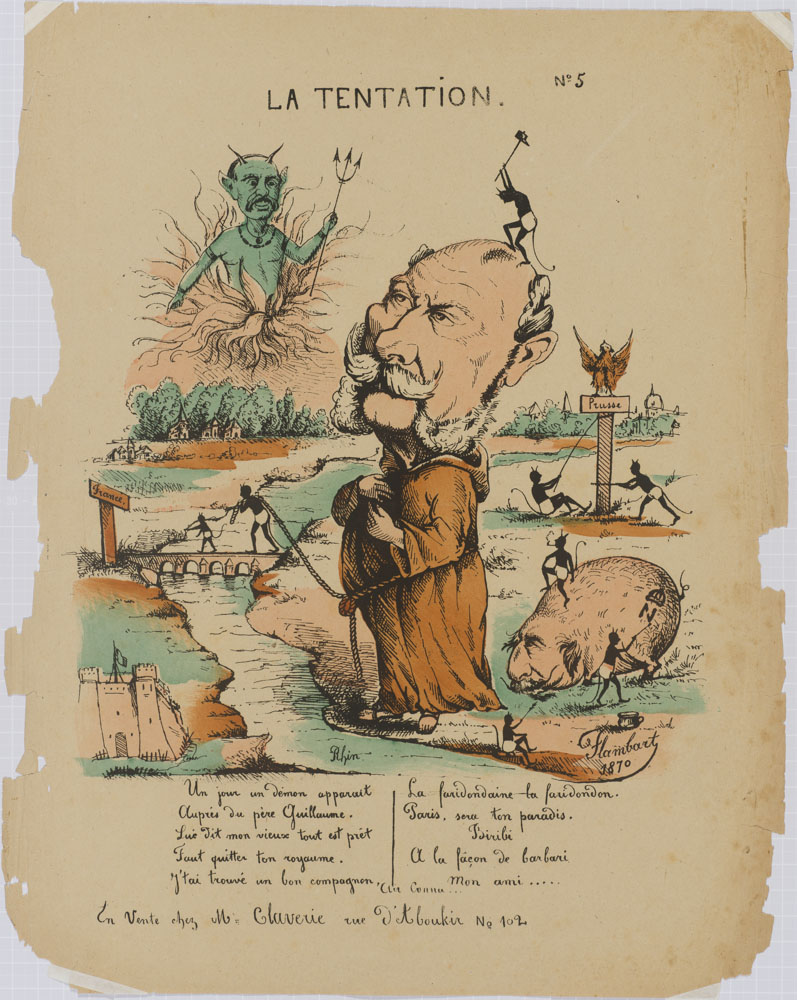 LA TENTATION.
Nº 5
Prusse
France
ND
Rhin
Flambart
1870
Un jour un démon apparait
Auprés du père Guillaume.
Lui dit mon vieux tout est prêt
Faut quitter ton royaume.
J'tai trouvé un bon compagnon,
La faridondaine la faridondon.
Paris, sera ton paradis.
Biribi
A la façon de barbari
Mon ami .....
Air Connu ...
En Vente chez Mº Claverie rue D'Aboukir Nº 102